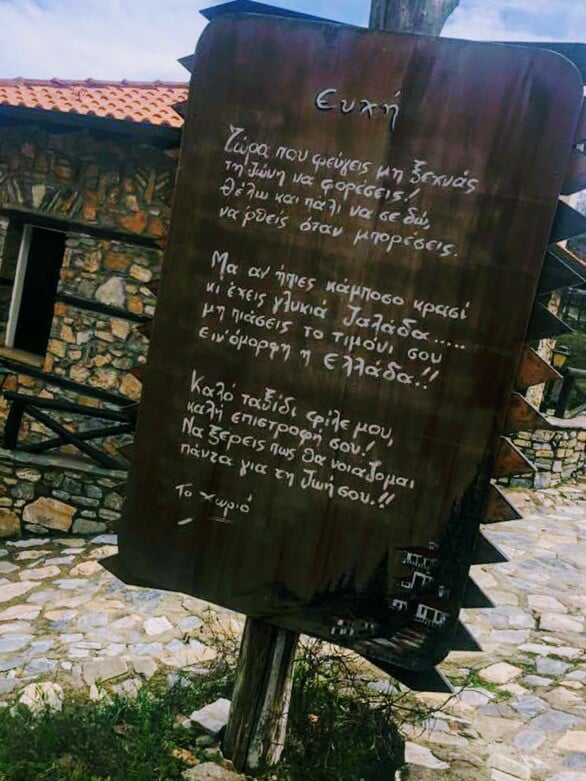 Ευχή
Τώρα που φεύγεις μη ξεχνάς
τη Ζώνη να φορέσεις!
Θέλω και πάλι να σε δώ,
να ρθείς όταν μπορέσεις.
Μα αν ήπιες κάμποσο κρασί
κι έχεις γλυκιά Ζαλάδα.....
μη πιάσεις το τιμόνι σου
ειν' όμορφη η Ελλάδα!!
Καλό ταξίδι φίλε μου,
καλή επιστροφή σου!
Να ξέρεις πως θα νοιάζομαι
πάντα για τη Ζωή σου.!!
Το χωριό